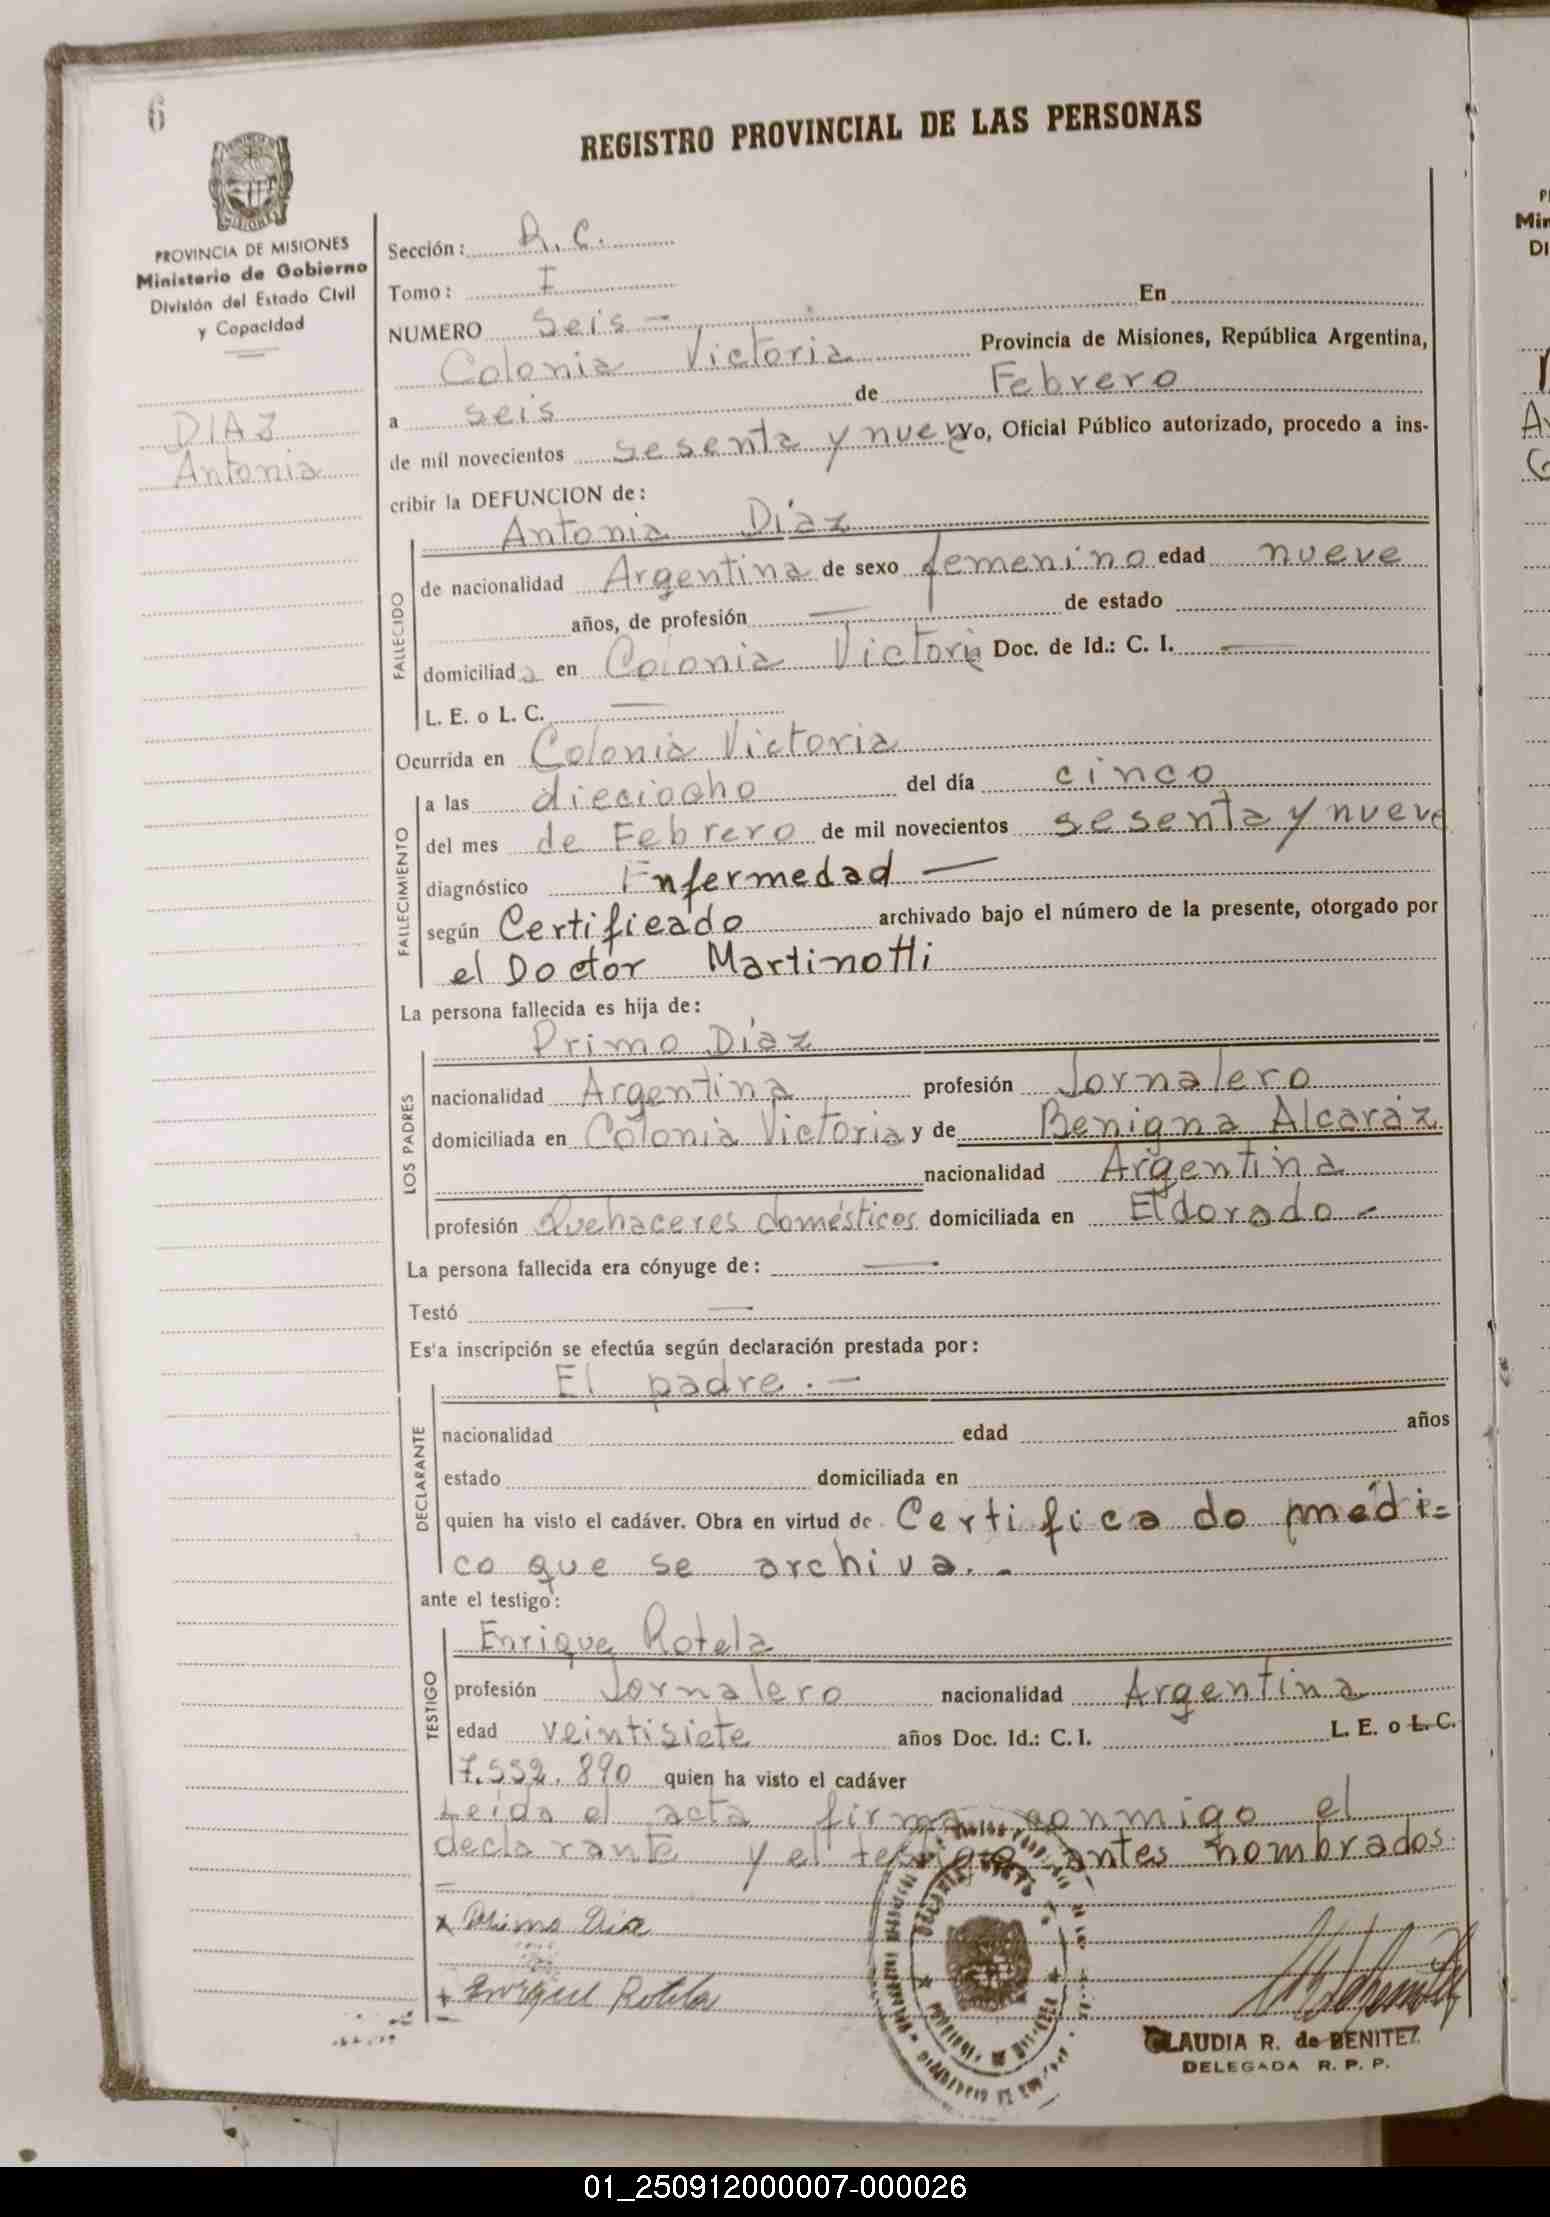 6
REGISTRO PROVINCIAL DE LAS PERSONAS
PROVINCIA DE MISIONES
Ministerio de Gobierno
División del Estado Civil
y Capacidad
DIAZ
Antonia
Sección: R. C.
Tomo: I
NUMERO Seis — En
Colonia Victoria Provincia de Misiones, República Argentina,
a seis de Febrero
de mil novecientos sesenta y nueve Yo, Oficial Público autorizado, procedo a ins-
cribir la DEFUNCION de:
Antonia Díaz
FALLECIDO
de nacionalidad Argentina de sexo femenino edad nueve
años, de profesión — de estado
domiciliada en Colonia Victoria Doc. de Id.: C. I. —
L. E. o L. C. —
Ocurrida en Colonia Victoria
FALLECIMIENTO
a las dieciocho del día cinco
del mes de Febrero de mil novecientos sesenta y nueve
diagnóstico Enfermedad —
según Certificado archivado bajo el número de la presente, otorgado por
el Doctor Martinotti
La persona fallecida es hija de:
Primo Díaz
LOS PADRES
nacionalidad Argentina profesión Jornalero
domiciliada en Colonia Victoria y de Benigna Alcaráz
nacionalidad Argentina
profesión Quehaceres domésticos domiciliada en Eldorado -
La persona fallecida era cónyuge de: —
Testó —
Esta inscripción se efectúa según declaración prestada por:
El padre. —
DECLARANTE
nacionalidad edad años
estado domiciliada en
quien ha visto el cadáver. Obra en virtud de Certificado médi=
co que se archiva. -
ante el testigo:
Enrique Rotela
TESTIGO
profesión Jornalero nacionalidad Argentina
edad veintisiete años Doc. Id.: C. I. L. E. o L. C.
7.552.890 quien ha visto el cadáver
Leída el acta firma conmigo el
declarante y el testigo antes nombrados.
x Primo Diaz
+ Enrique Rotela
CLAUDIA R. de BENITEZ
DELEGADA R. P. P.
01_250912000007-000026